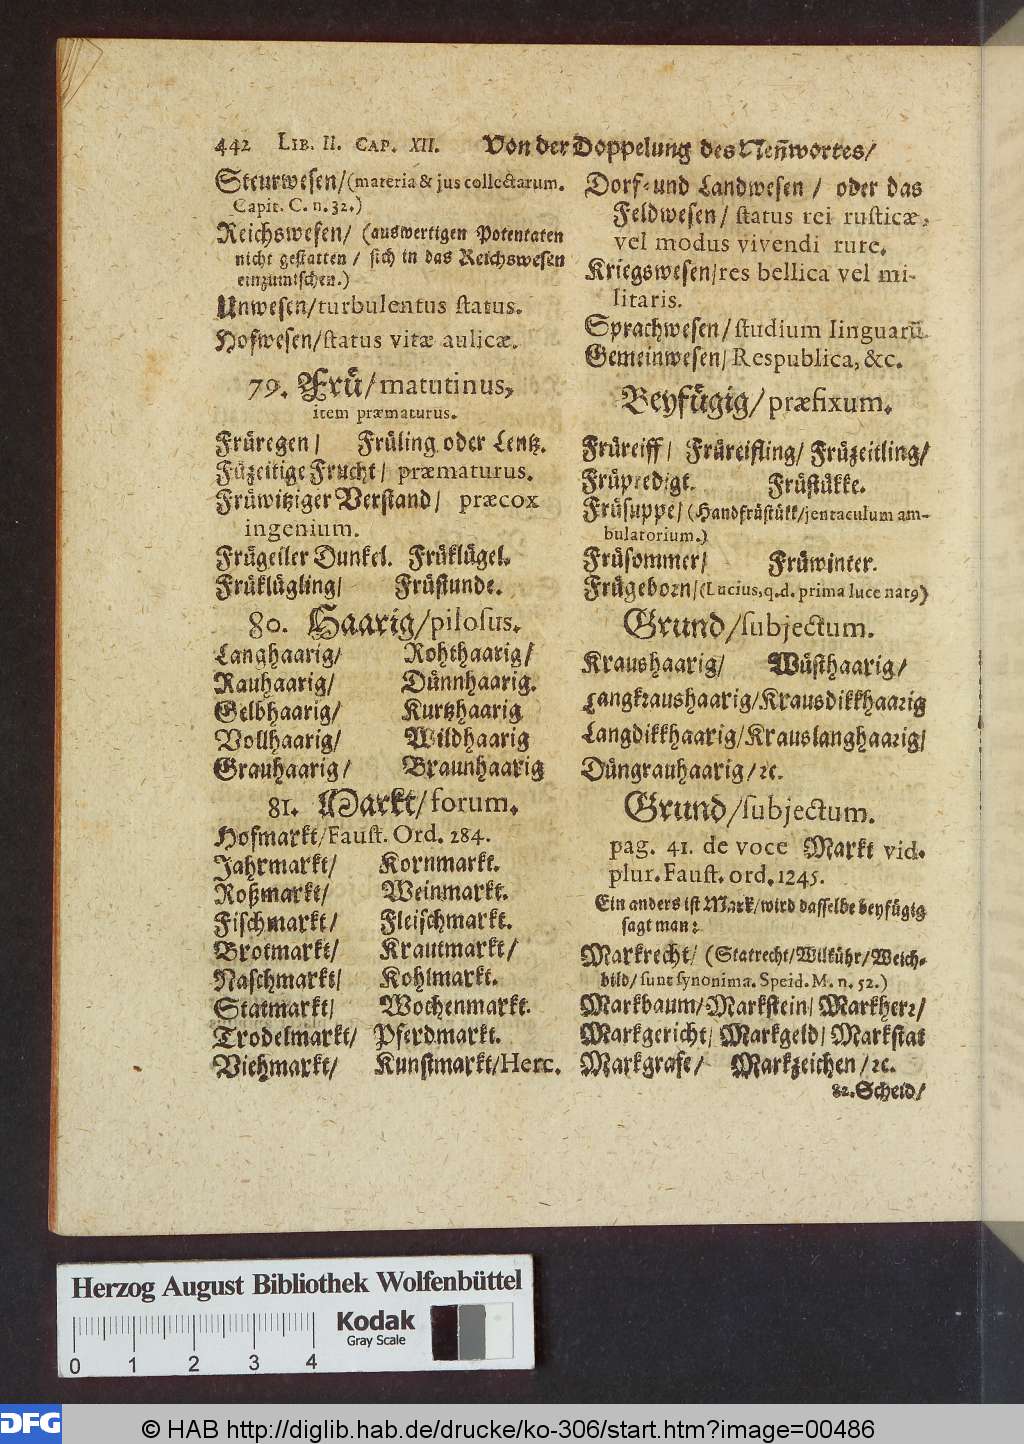 442 LIB. II. CAP. XII. Von der Doppelung des Neñwortes/
Steurwesen/(materia & jus collectarum.
Capit. C. n. 32.)
Reichswesen/ (auswertigen Potentaten
nicht gestatten / sich in das Reichswesen
einzumischen.)
Unwesen/turbulentus status.
Hofwesen/status vitæ aulicæ.
79. Frü/matutinus,
item præmaturus.
Früregen/ Früling oder Lentz.
Füzeitige Frucht/ præmaturus.
Früwitziger Verstand/ præcox
ingenium.
Frügeiler Dunkel. Früklügel.
Früklügling/ Früstunde.
80. Haarig/pilosus.
Langhaarig/ Rohthaarig/
Rauhaarig/ Dünnhaarig.
Gelbhaarig/ Kurtzhaarig
Vollhaarig/ Wildhaarig
Grauhaarig/ Braunhaarig
81. Markt/forum.
Hofmarkt/Faust. Ord. 284.
Jahrmarkt/ Kornmarkt.
Roßmarkt/ Weinmarkt.
Fischmarkt/ Fleischmarkt.
Brotmarkt/ Krautmarkt/
Naschmarkt/ Kohlmarkt.
Statmarkt/ Wochenmarkt.
Trodelmarkt/ Pferdmarkt.
Viehmarkt/ Kunstmarkt/Herc.
Dorf-und Landwesen / oder das
Feldwesen/ status rei rusticæ,
vel modus vivendi rure.
Kriegswesen/res bellica vel mi-
litaris.
Sprachwesen/studium linguarũ
Gemeinwesen/Respublica, &c.
Beyfügig/præfixum.
Früreiff/ Früreifling/ Früzeitling/
Früpredigt. Früstükke.
Früsuppe/(Handfrüstükk/jentaculum am-
bulatorium.)
Früsommer/ Früwinter.
Frügeborn/(Lucius, q.d. prima luce natꝰ)
Grund/subjectum.
Kraushaarig/ Wüsthaarig/
Langkraushaarig/Krausdikkhaarig
Langdikkhaarig/Krauslanghaarig/
Düngrauhaarig/ꝛc.
Grund/subjectum.
pag. 41. de voce Markt vid.
plur. Faust. ord. 1245.
Ein anders ist Mark/wird dasselbe beyfügig
sagt man:
Markrecht/ (Statrecht/Wilkühr/Weich-
bild/sunt synonima. Speid. M. n. 52.)
Markbaum/Markstein/Markherr/
Markgericht/Markgeld/Markstat
Markgrafe/ Markzeichen/ꝛc.
82. Scheid/
Herzog August Bibliothek Wolfenbüttel
Kodak
Gray Scale
0 1 2 3 4
DFG © HAB http://diglib.hab.de/drucke/ko-306/start.htm?image=00486